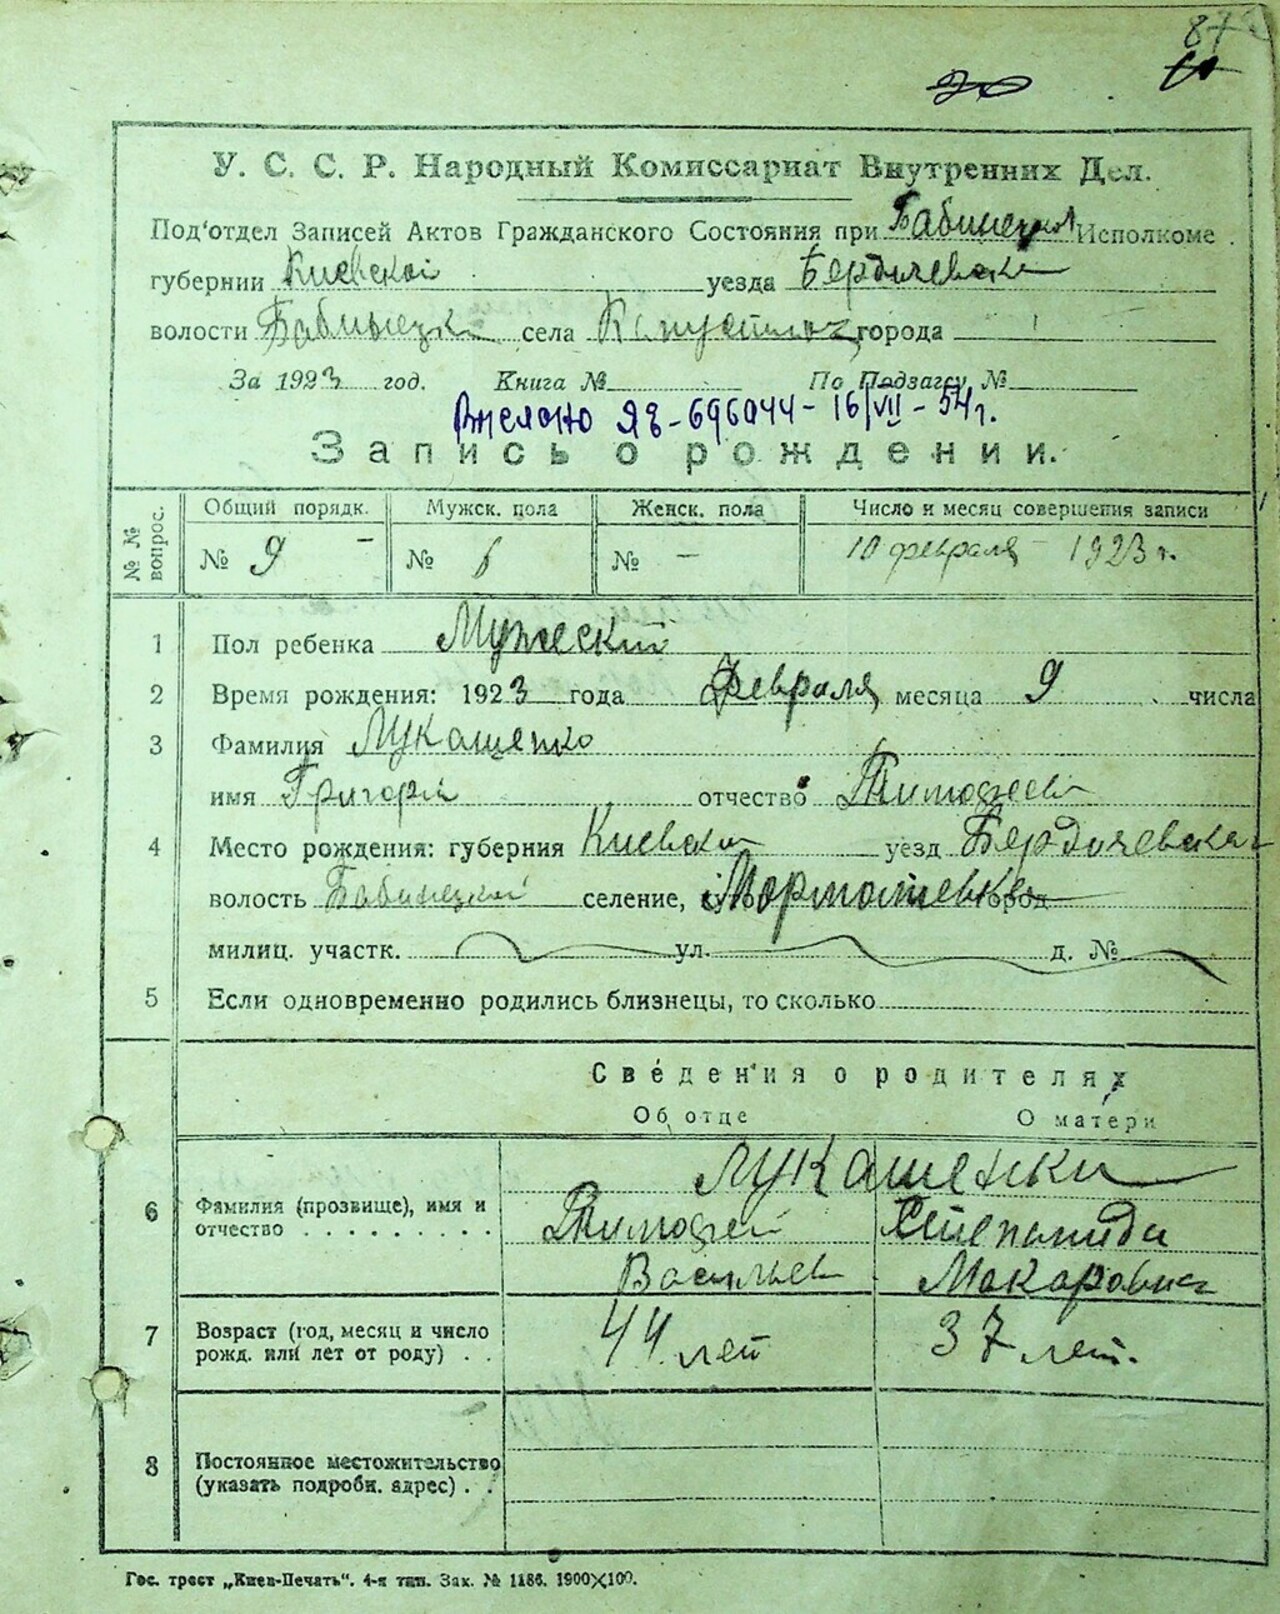 87
20
У. С. С. Р. Народный Комиссариат Внутренних Дел.
Под'отдел Записей Актов Гражданского Состояния при Бабинецком Исполкоме
губернии Киевской уезда Бердичевска
волости Бабинецки села города
За 1923 год. Книга № По Подзагсу №
ЯБ-696044- 16/VII-54г.
Запись о рождении.
№ № вопрос. Общий порядк. Мужск. пола Женск. пола Число и месяц совершения записи
№ 9 - № 6 № - 10 февраля - 1923 г.
1 Пол ребенка Мужеский
2 Время рождения: 1923 года Февраля месяца 9 числа
3 Фамилия Лукашенко
имя Григорий отчество Тимофеев
4 Место рождения: губерния Киевская уезд Бердичевская
волость Бабинецкой селение,
милиц. участк. ул. д. №
5 Если одновременно родились близнецы, то сколько
Сведения о родителях
Об отце О матери
Лукашенки
6 Фамилия (прозвище), имя и
отчество . . . . . . . . . Тимофей Степанида
Васильев Макаровна
7 Возраст (год, месяц и число
рожд. или лет от роду) . . 44 лет 37 лет.
8 Постоянное местожительство
(указать подробн. адрес) . .
Гос. трест „Киев-Печать“. 4-я тип. Зак. № 1186. 1900×100.